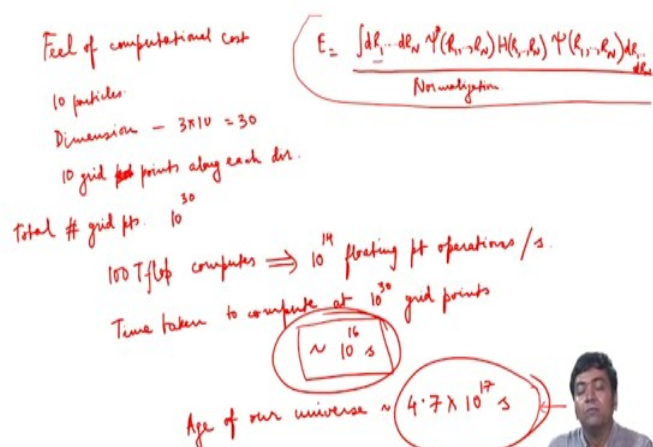 Feel of computational cost
E = ∫dR₁...dR_N Ψ*(R₁,..,R_N) H(R₁..R_N) Ψ(R₁,..,R_N) dR₁...dR_N
Normalization
10 particles
Dimension - 3×10 = 30
10 grid points along each dir.
Total # grid pts. 10³⁰
100 Tflop computer ⇒ 10¹⁴ floating pt operations/s.
Time taken to compute at 10³⁰ grid points
~ 10¹⁶ s
Age of our universe ~ 4.7 × 10¹⁷ s